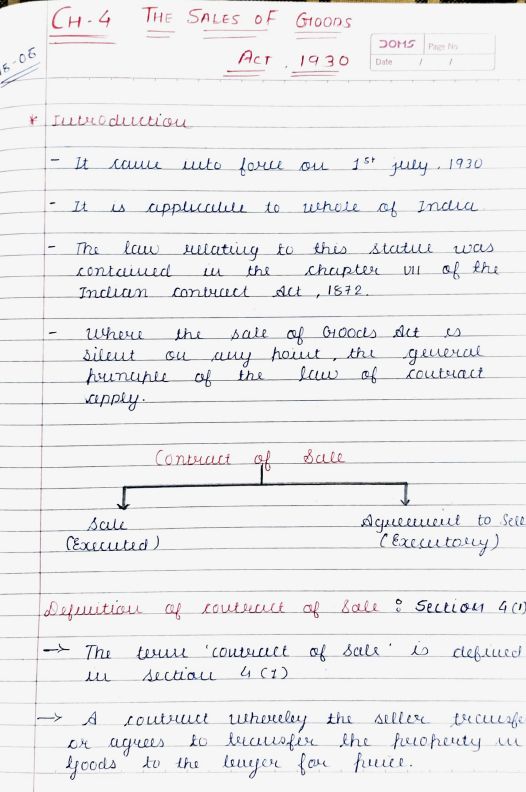 CH-4 THE SALES OF GOODS
ACT, 1930
DOMS Page No
Date / /
* Introduction
- It came into force on 1st july. 1930
- It is applicable to whole of India
- The law relating to this statue was
contained in the chapter VII of the
Indian contract Act, 1872.
- Where the sale of GOods Act is
silent on any point, the general
principle of the law of contract
apply.
Contract of Sale
Sale
(Executed)
Agreement to Sell
(Executory)
Definition of contract of Sale : Section 4(1)
→ The term 'contract of Sale' is defined
in section 4(1)
→ A contract whereby the seller transfe
or agrees to transfer the property in
Goods to the buyer for price.